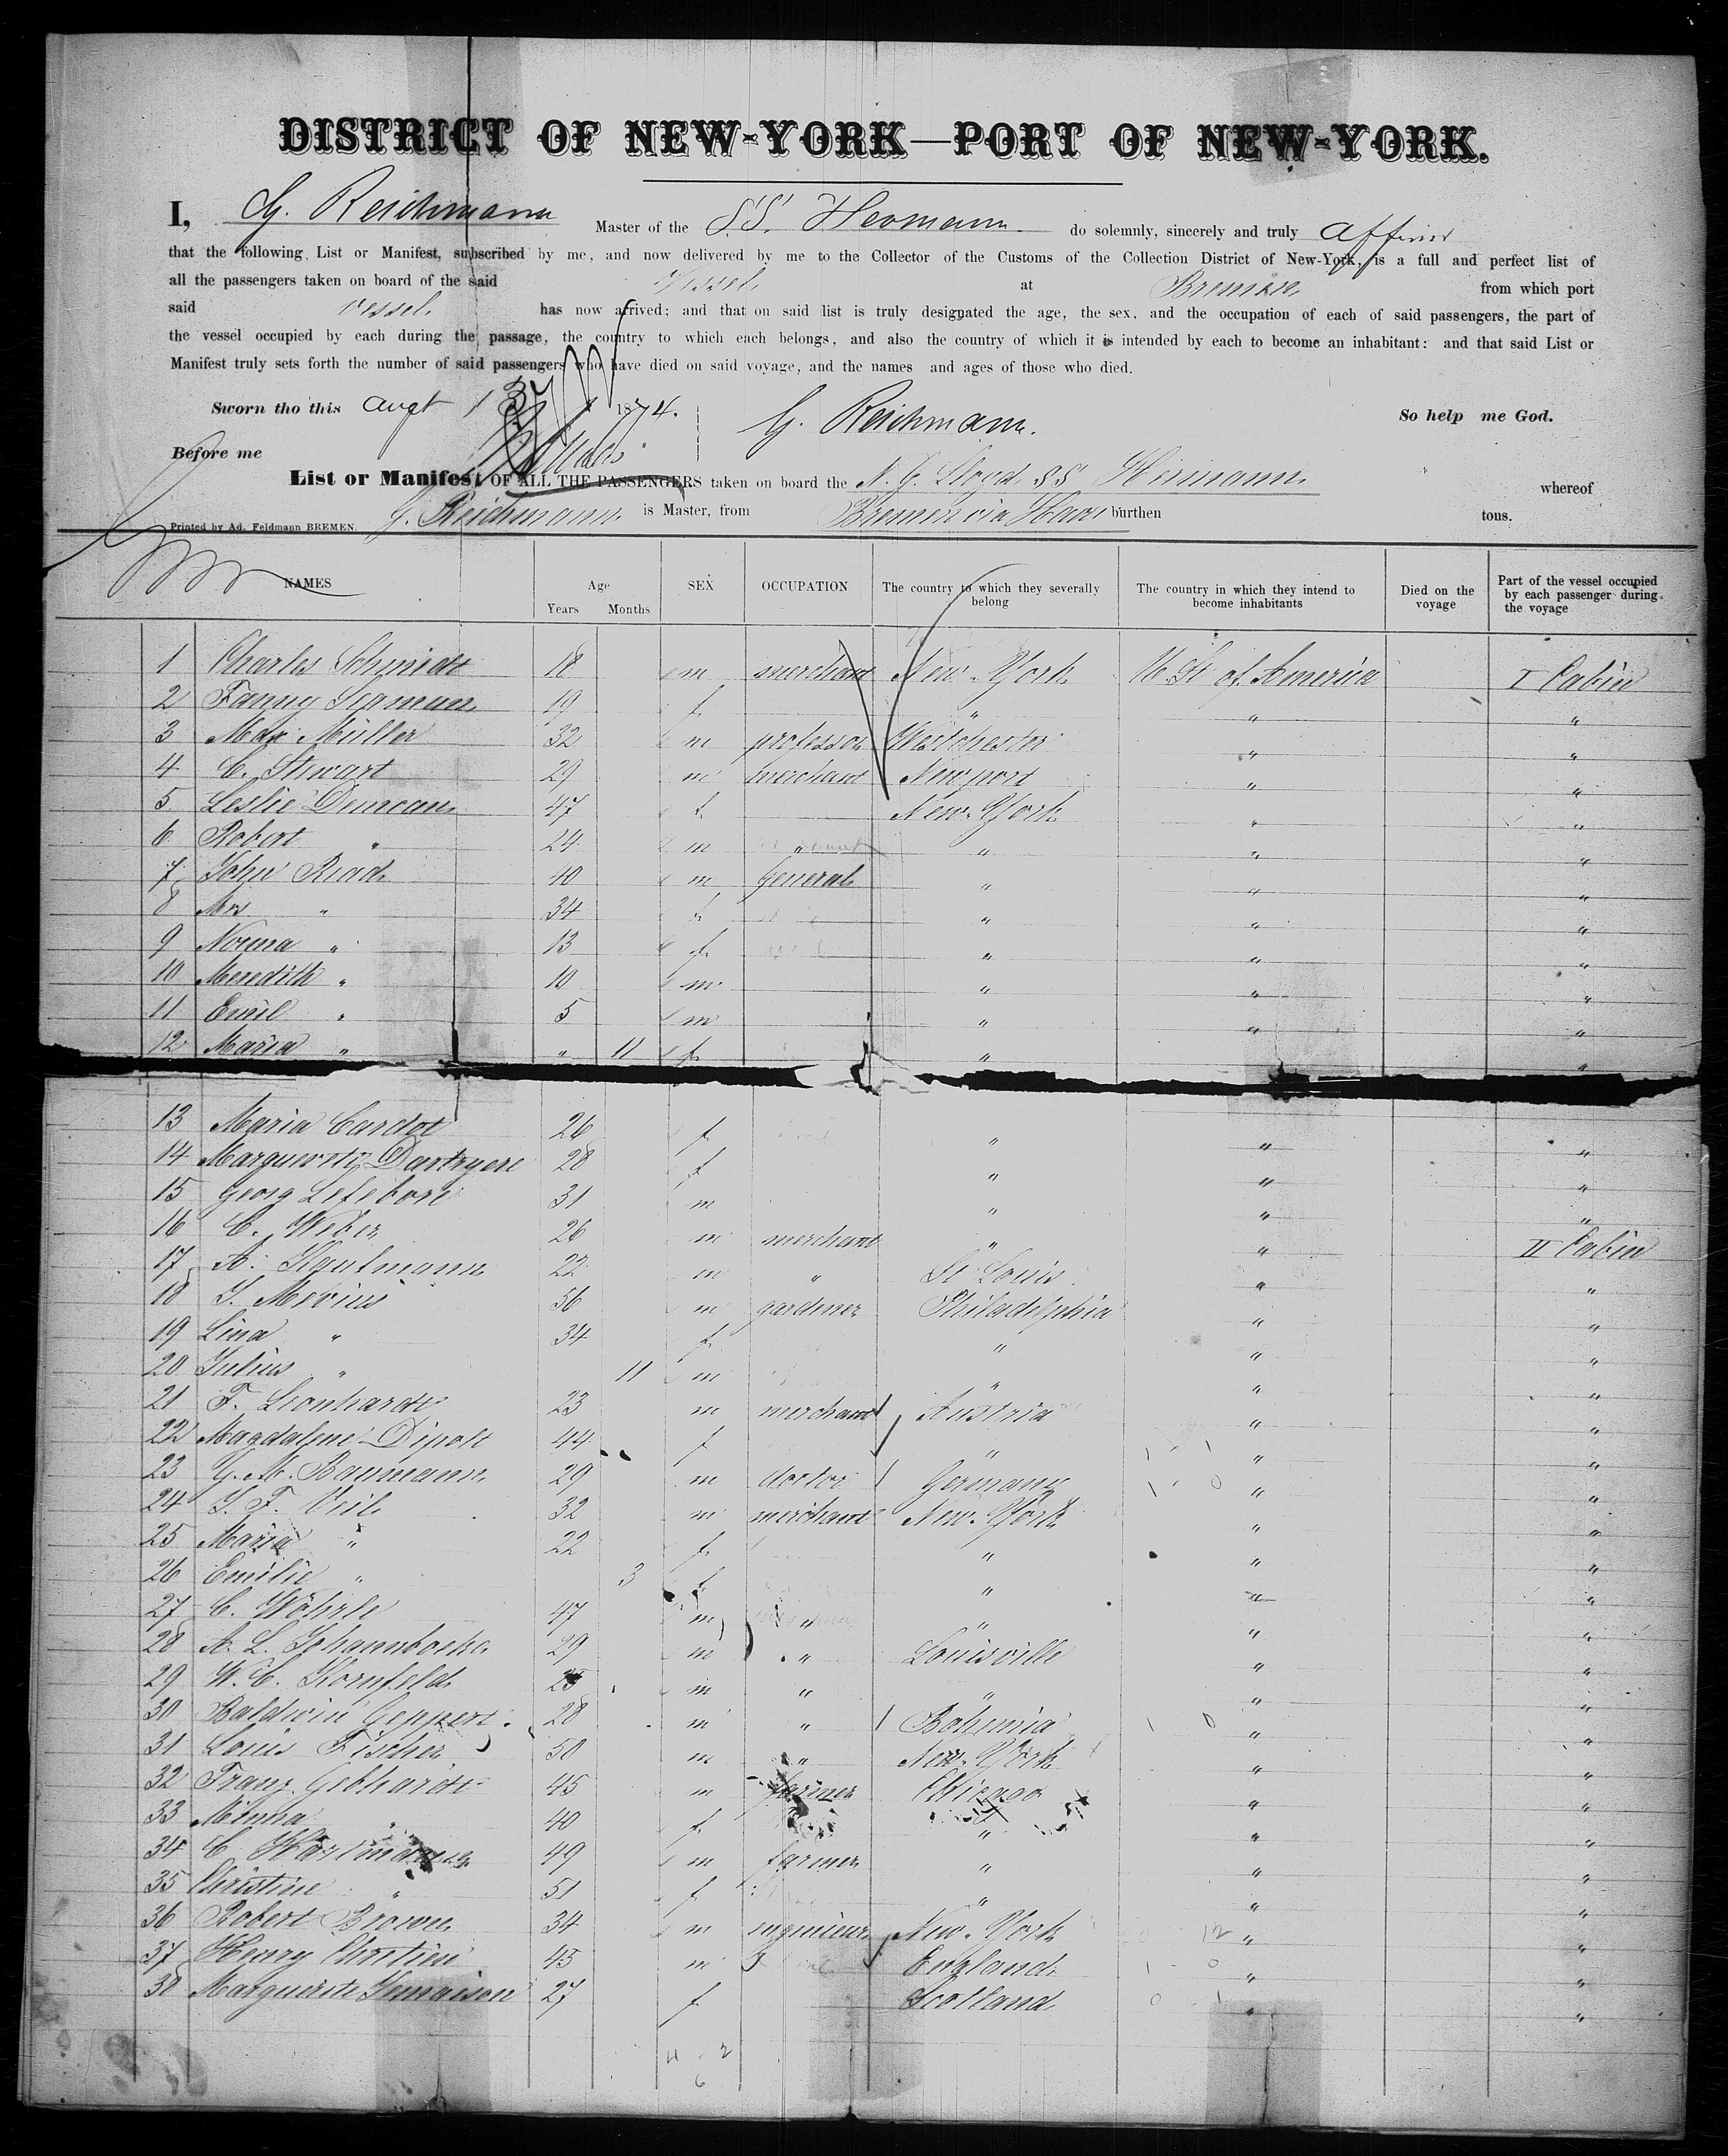 DISTRICT OF NEW-YORK—PORT OF NEW-YORK.
I, G. Reichmann Master of the S.S. Hermann do solemnly, sincerely and truly affirm
that the following List or Manifest, subscribed by me, and now delivered by me to the Collector of the Customs of the Collection District of New-York, is a full and perfect list of
all the passengers taken on board of the said Vessel at Bremen from which port
said vessel has now arrived; and that on said list is truly designated the age, the sex, and the occupation of each of said passengers, the part of
the vessel occupied by each during the passage, the country to which each belongs, and also the country of which it is intended by each to become an inhabitant: and that said List or
Manifest truly sets forth the number of said passengers who have died on said voyage, and the names and ages of those who died.
Sworn tho this Augt 13 1874. G. Reichmann. So help me God.
Before me
List or Manifest OF ALL THE PASSENGERS taken on board the N. G. Lloyd SS Hermann whereof
G. Reichmann is Master, from Bremen via Havre burthen tons.
Printed by Ad. Feldmann BREMEN.
NAMES Age SEX OCCUPATION The country to which they severally belong The country in which they intend to become inhabitants Died on the voyage Part of the vessel occupied by each passenger during the voyage
Years Months
1 Charles Schmidt 18 m merchant New-York U. St. of America I Cabin
2 Fanny 19 f " " "
3 Max Müller 32 m professor Westchester " "
4 C. Stewart 29 m merchant Newport " "
5 Leslie Duncan 47 f New-York " "
6 Robert " 24 m " " " "
7 John Read 40 m General " " "
8 Mrs " 34 f " " "
9 Norma " 13 f " " "
10 Meredith " 10 m " " "
11 Emil " 5 m " " "
12 Maria " " 11 f " "
13 Maria Cardot 26 f " " "
14 Marguerite 28 f " " "
15 Georg Lefebore 31 m " " "
16 C. Weber 26 m merchant " " II Cabin
17 A. Kaufmann 22 m " St Louis " "
18 J. Mevius 36 m gardener Philadelphia " "
19 Lina " 34 f " " "
20 Julius " 11 m " " "
21 F. Leonhardt 23 m merchant Austria " "
22 Magdalene Dipolt 44 f " " "
23 G. M. Baumann 29 m doctor Germany " "
24 J. F. Veil 32 m merchant New-York " "
25 Maria " 22 f " " "
26 Emilie " 3 f " " "
27 C. Wöhrle 47 m " " " "
28 A. L. 29 m " Louisville " "
29 W. C. Kornfeld m " " " "
30 Baldwin Geppert 28 m " Bohemia " "
31 Louis Fischer 50 m " New-York " "
32 Franz Gebhardt 45 m farmer Chicago " "
33 Minna " 40 f " " "
34 C. Hartmann 49 m farmer " " "
35 Christine " 51 f " " "
36 Robert Brown 34 m ingenieur New-York " "
37 Henry Chretien 45 m England " "
38 Marguerite 27 f Scotland " "
4 2
6